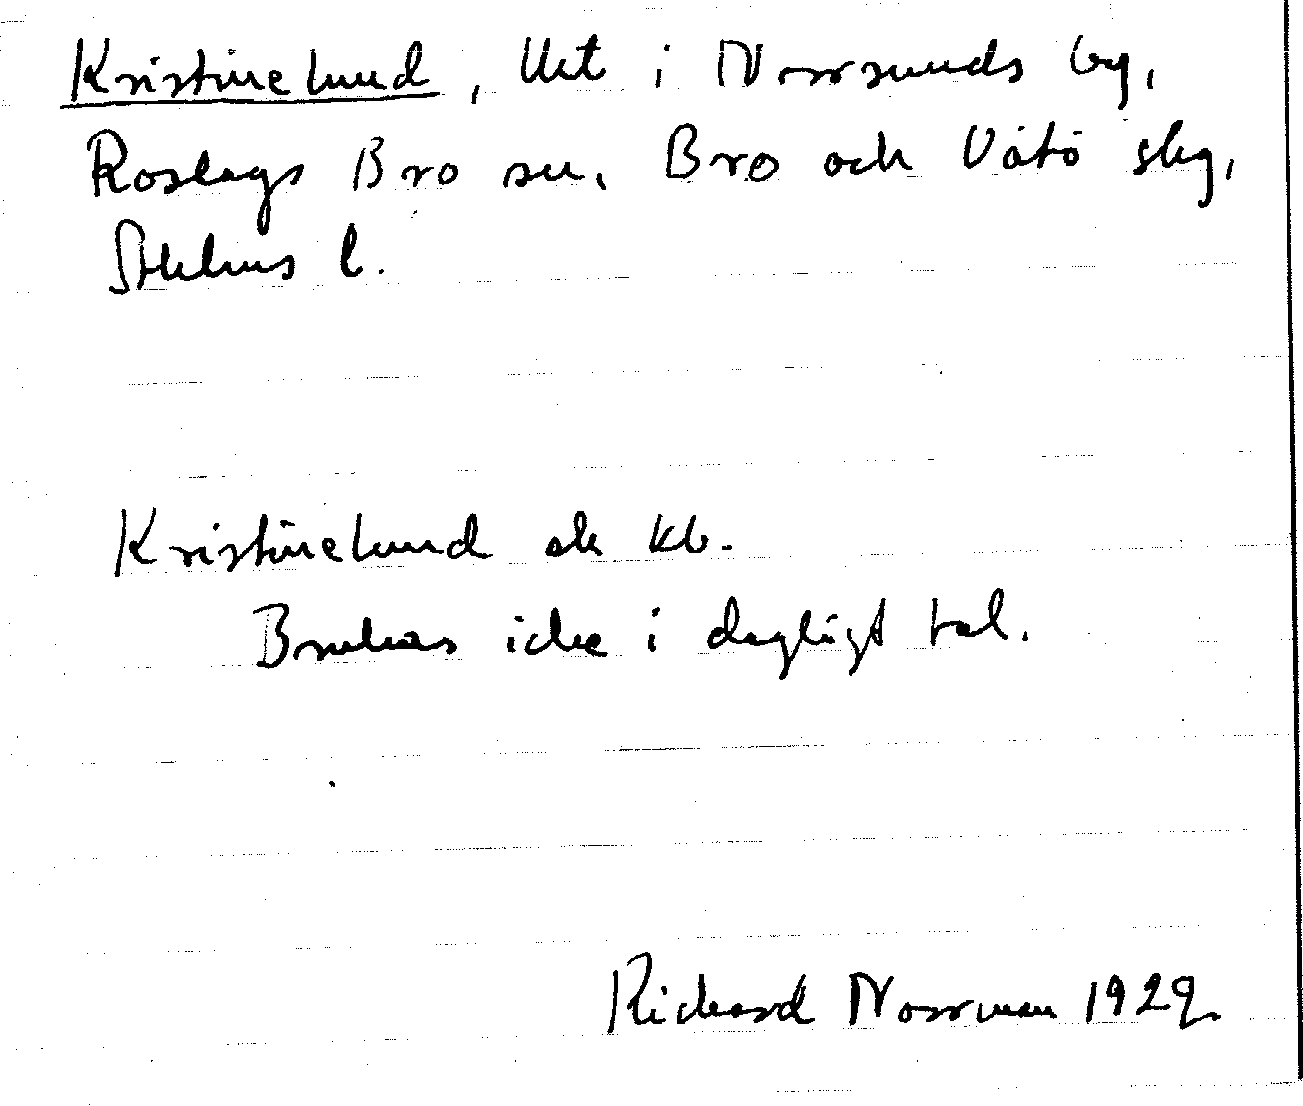 Kristinelund, lht i Norrsunds by,
Roslags Bro sn. Bro och Vätö skg,
Sthlms l.
Kristinelund ek kb.
Brukas icke i dagligt tal.
Richard Norrman 1929